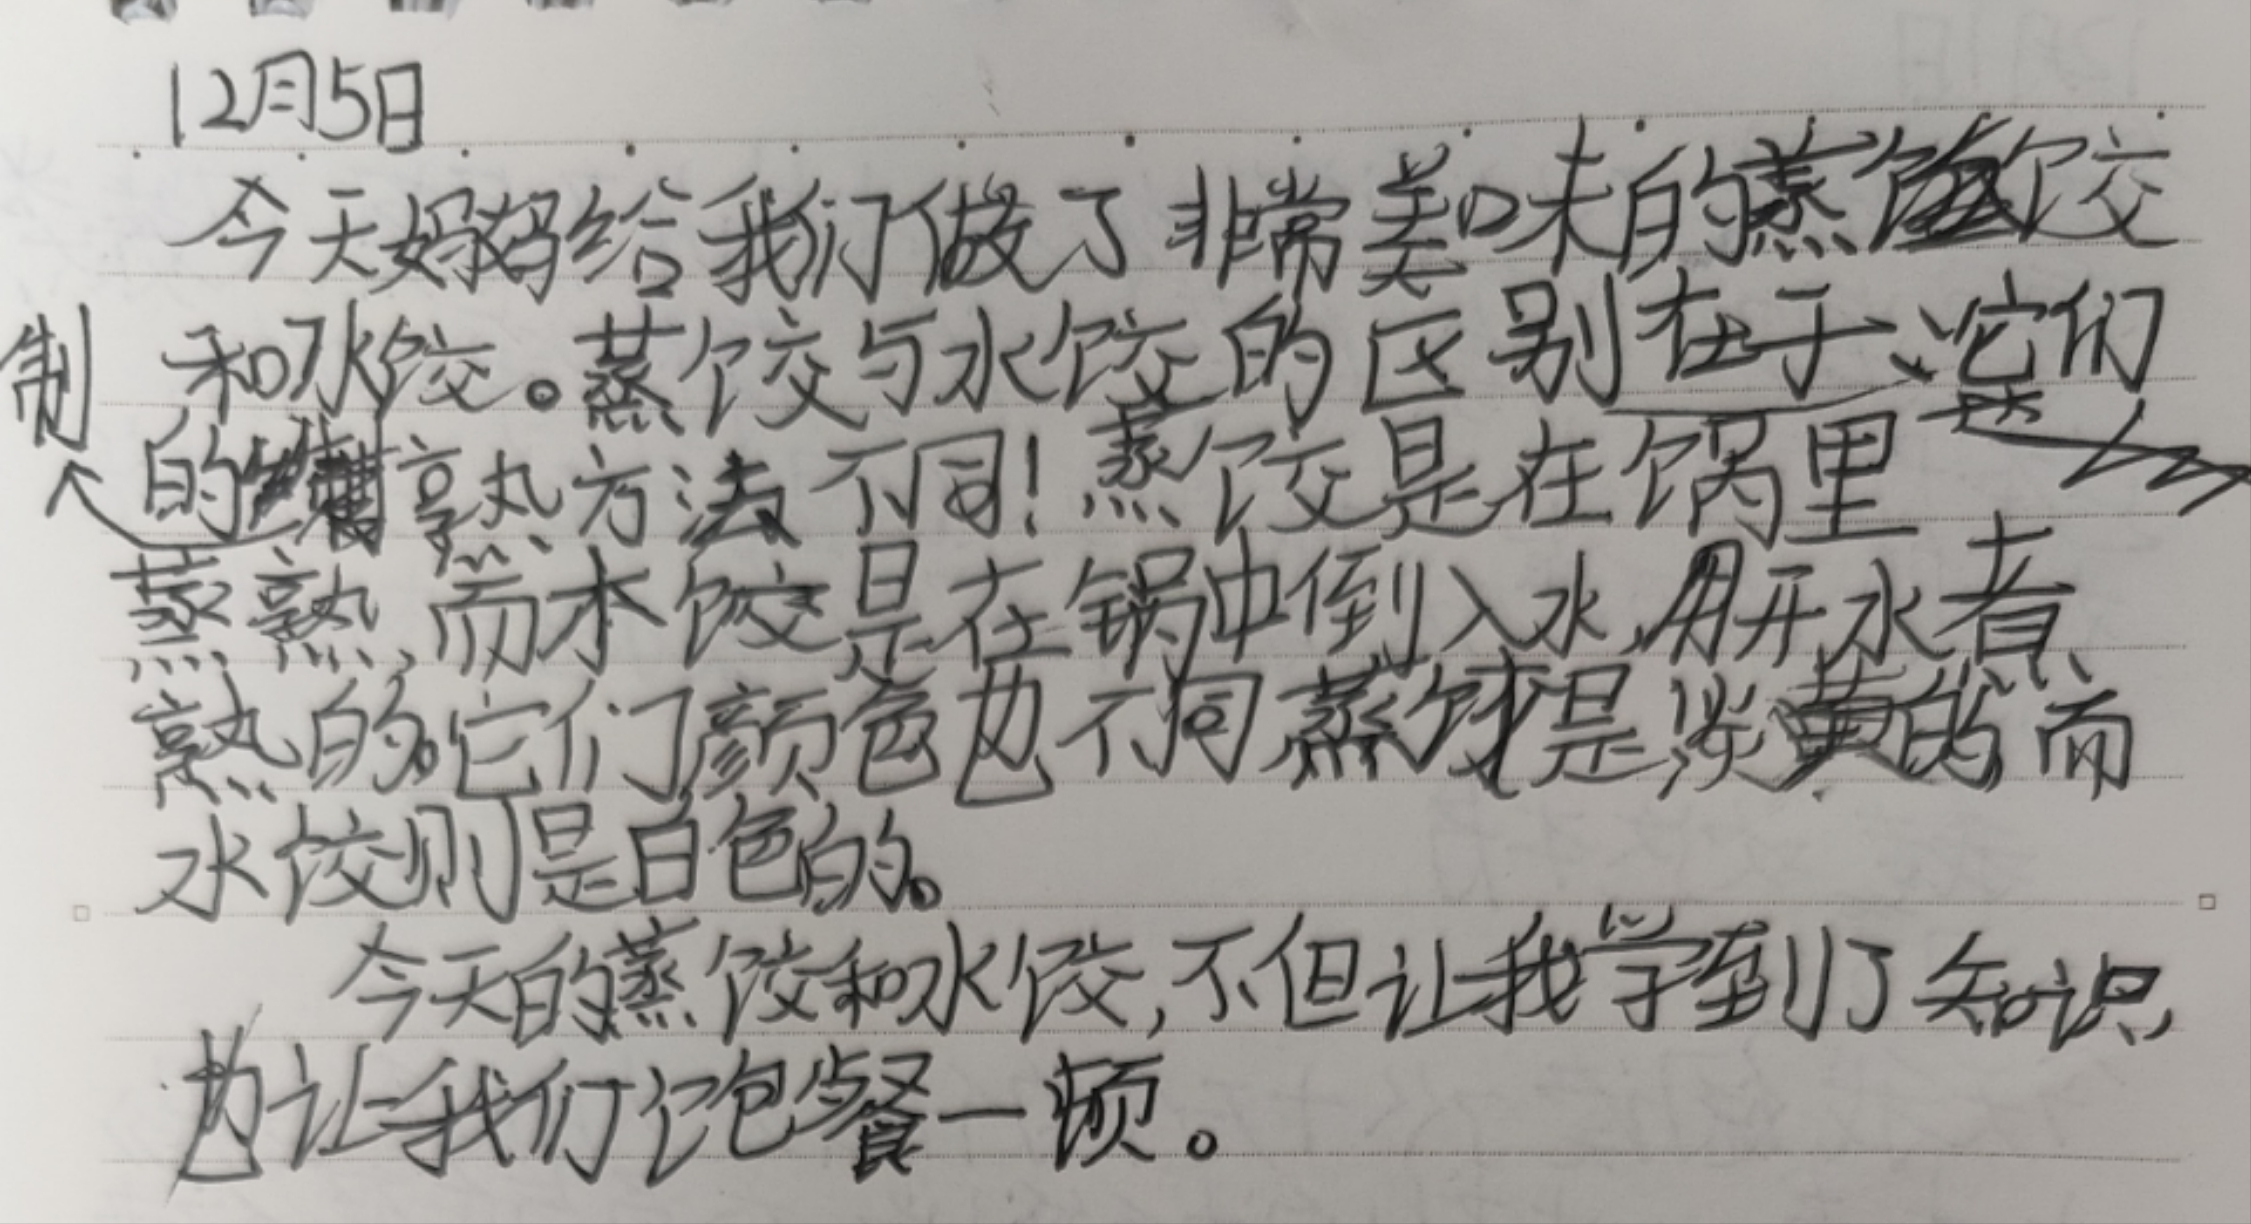 12月5日
今天妈妈给我们做了非常美味的蒸饺
和水饺。蒸饺与水饺的区别在于、它们
的制熟方法不同！蒸饺是在锅里
蒸熟,而水饺是在锅中倒入水,用开水煮
熟的。它们颜色也不同,蒸饺是淡黄的,而
水饺则是白色的。
今天的蒸饺和水饺,不但让我学到了知识,
也让我们饱餐一顿。